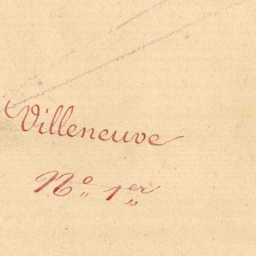 Villeneuve
Nº 1er